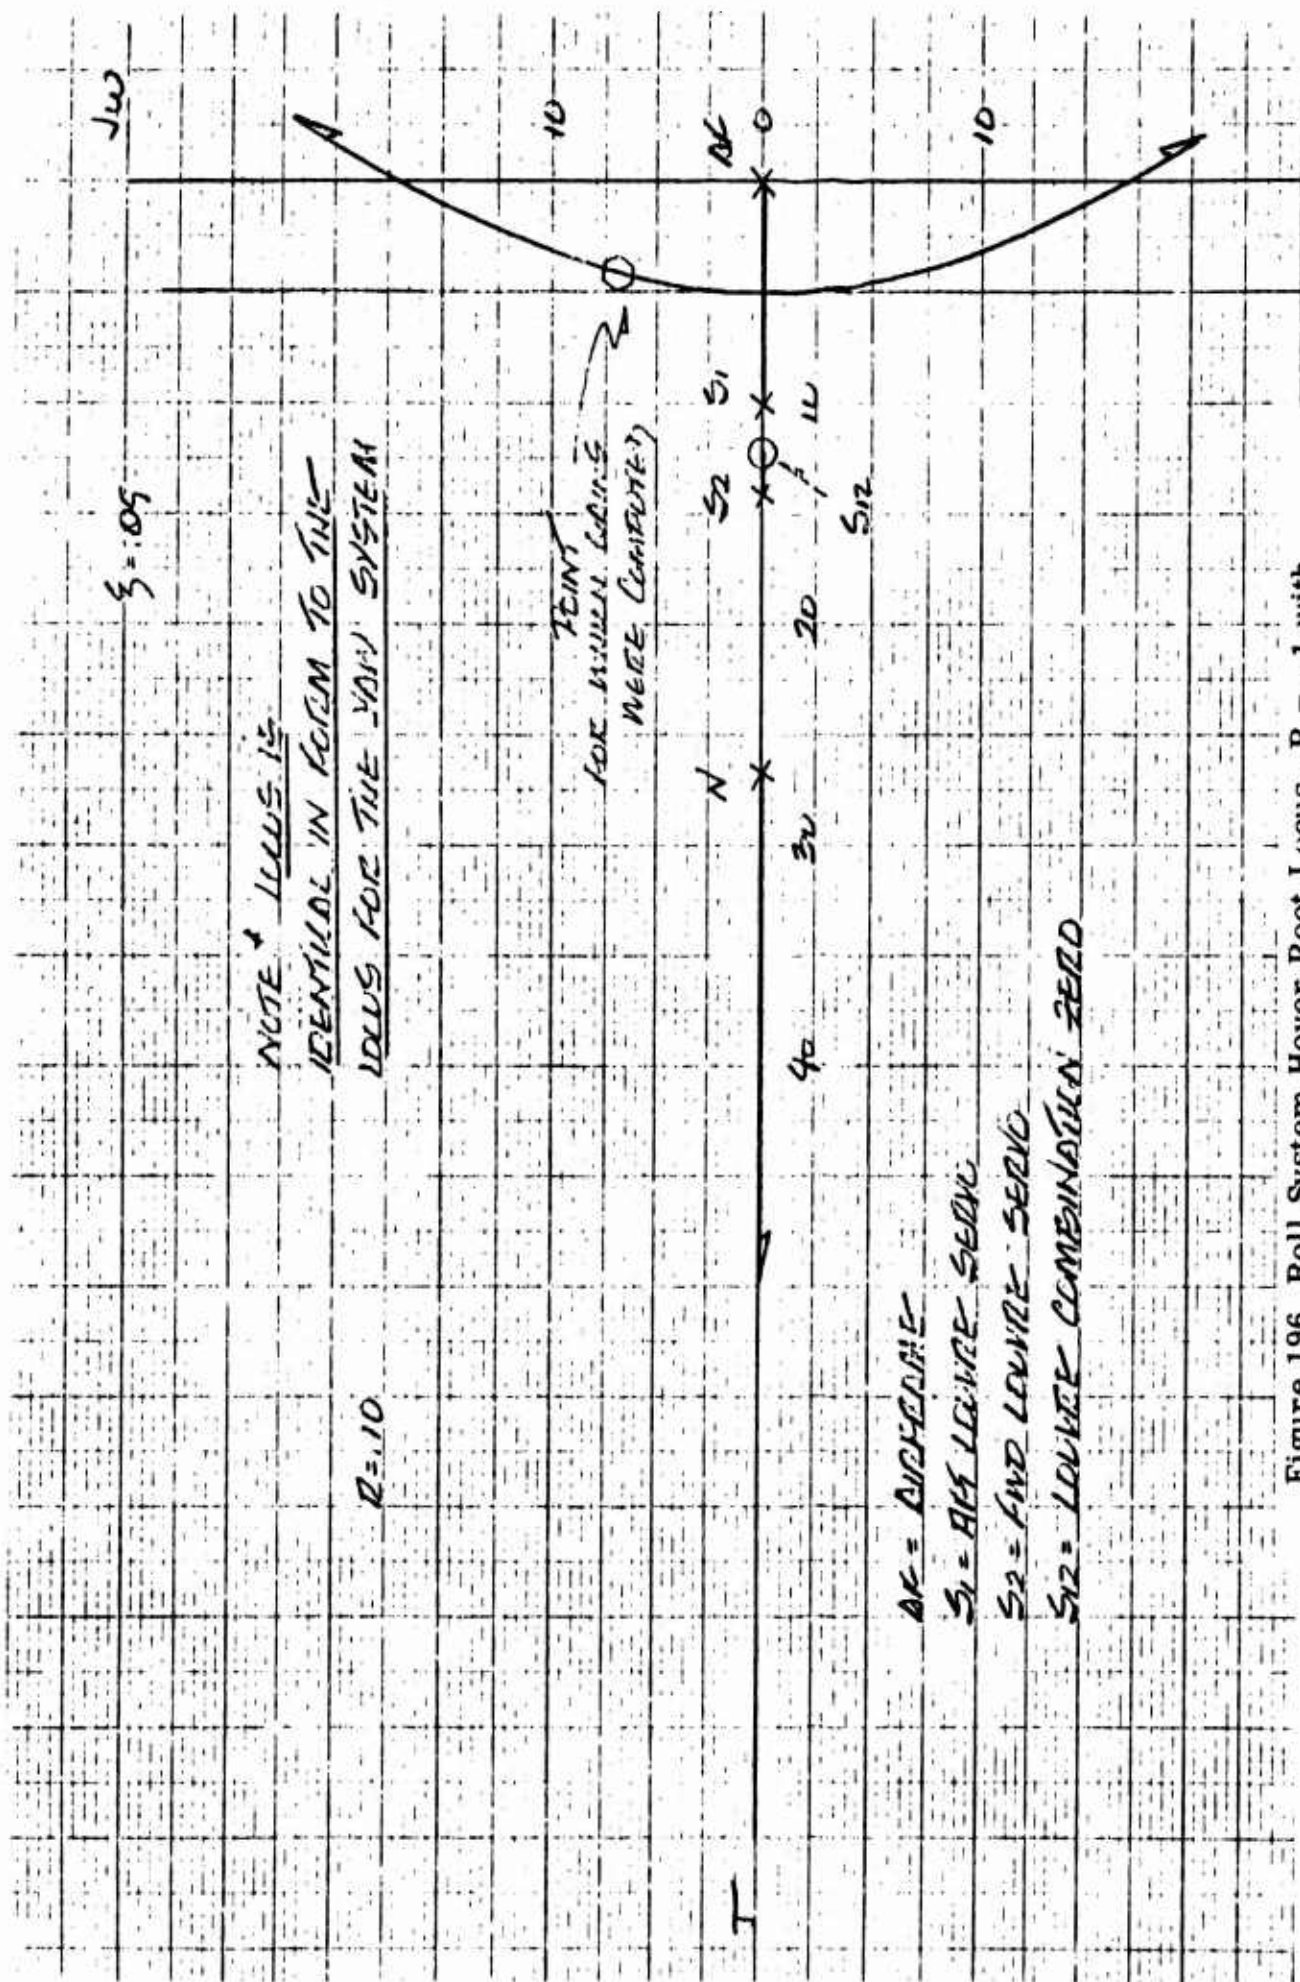 Jω
ξ = .05
NOTE * LOCUS IS
IDENTICAL IN FORM TO THE
LOCUS FOR THE YAW SYSTEM
R = .10
10
POINT
FOR WHICH GAINS
WERE COMPUTED
N
S2
S1
AF
0
40
30
20
10
S12
10
AF = AIRFRAME
S1 = AFT LOUVRE SERVO
S2 = FWD LOUVRE SERVO
S12 = LOUVRE COMBINATION ZERO
Figure 196 Roll System Hover Root Locus
with